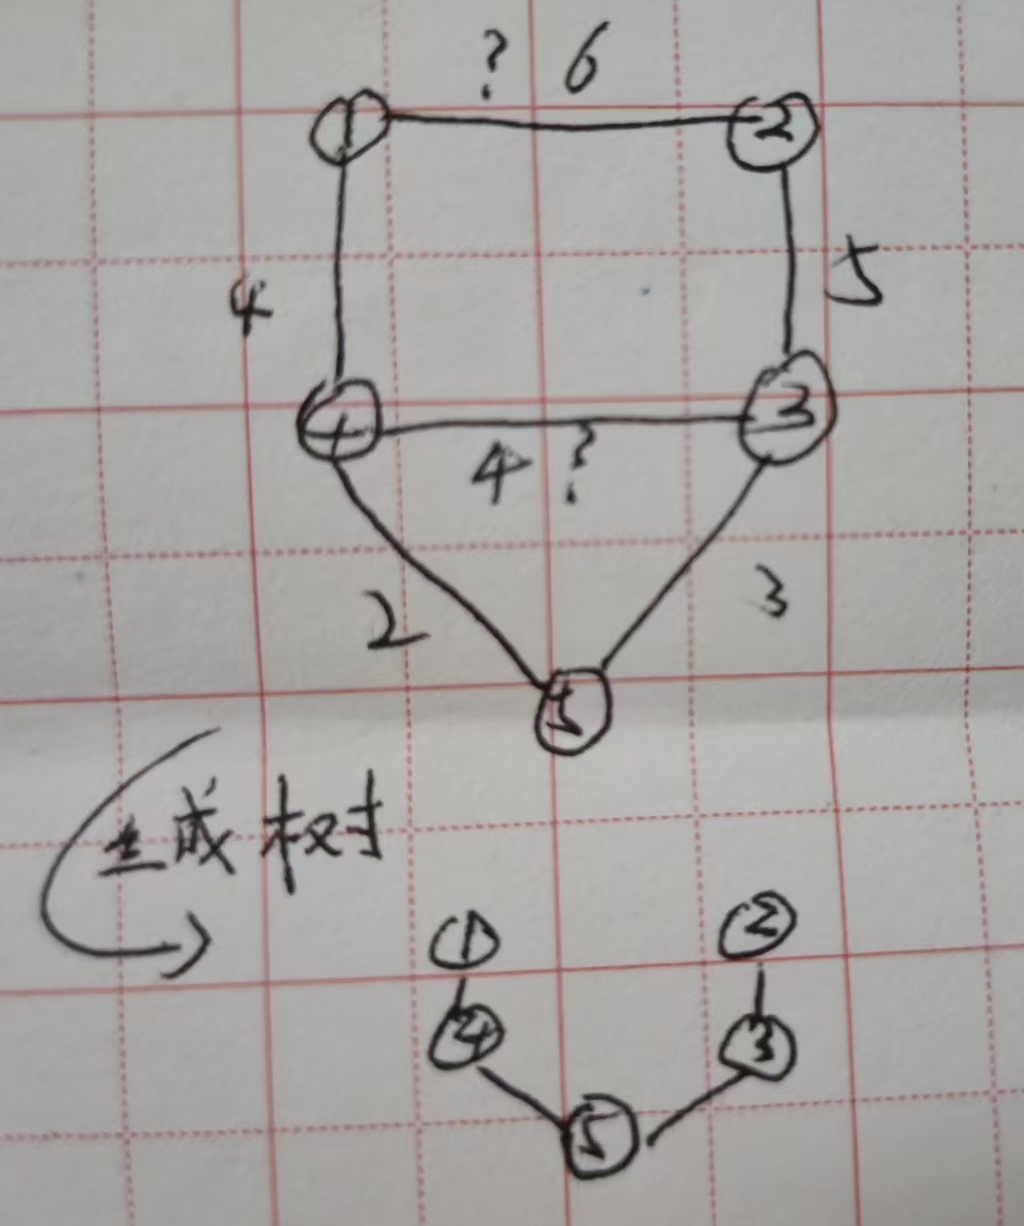 ? 6
① ②
4 5
④ ③
4 ?
2 3
⑤
生成树
① ②
④ ③
⑤